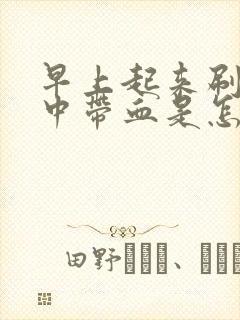 早上起来刷
中带血是怎
田野